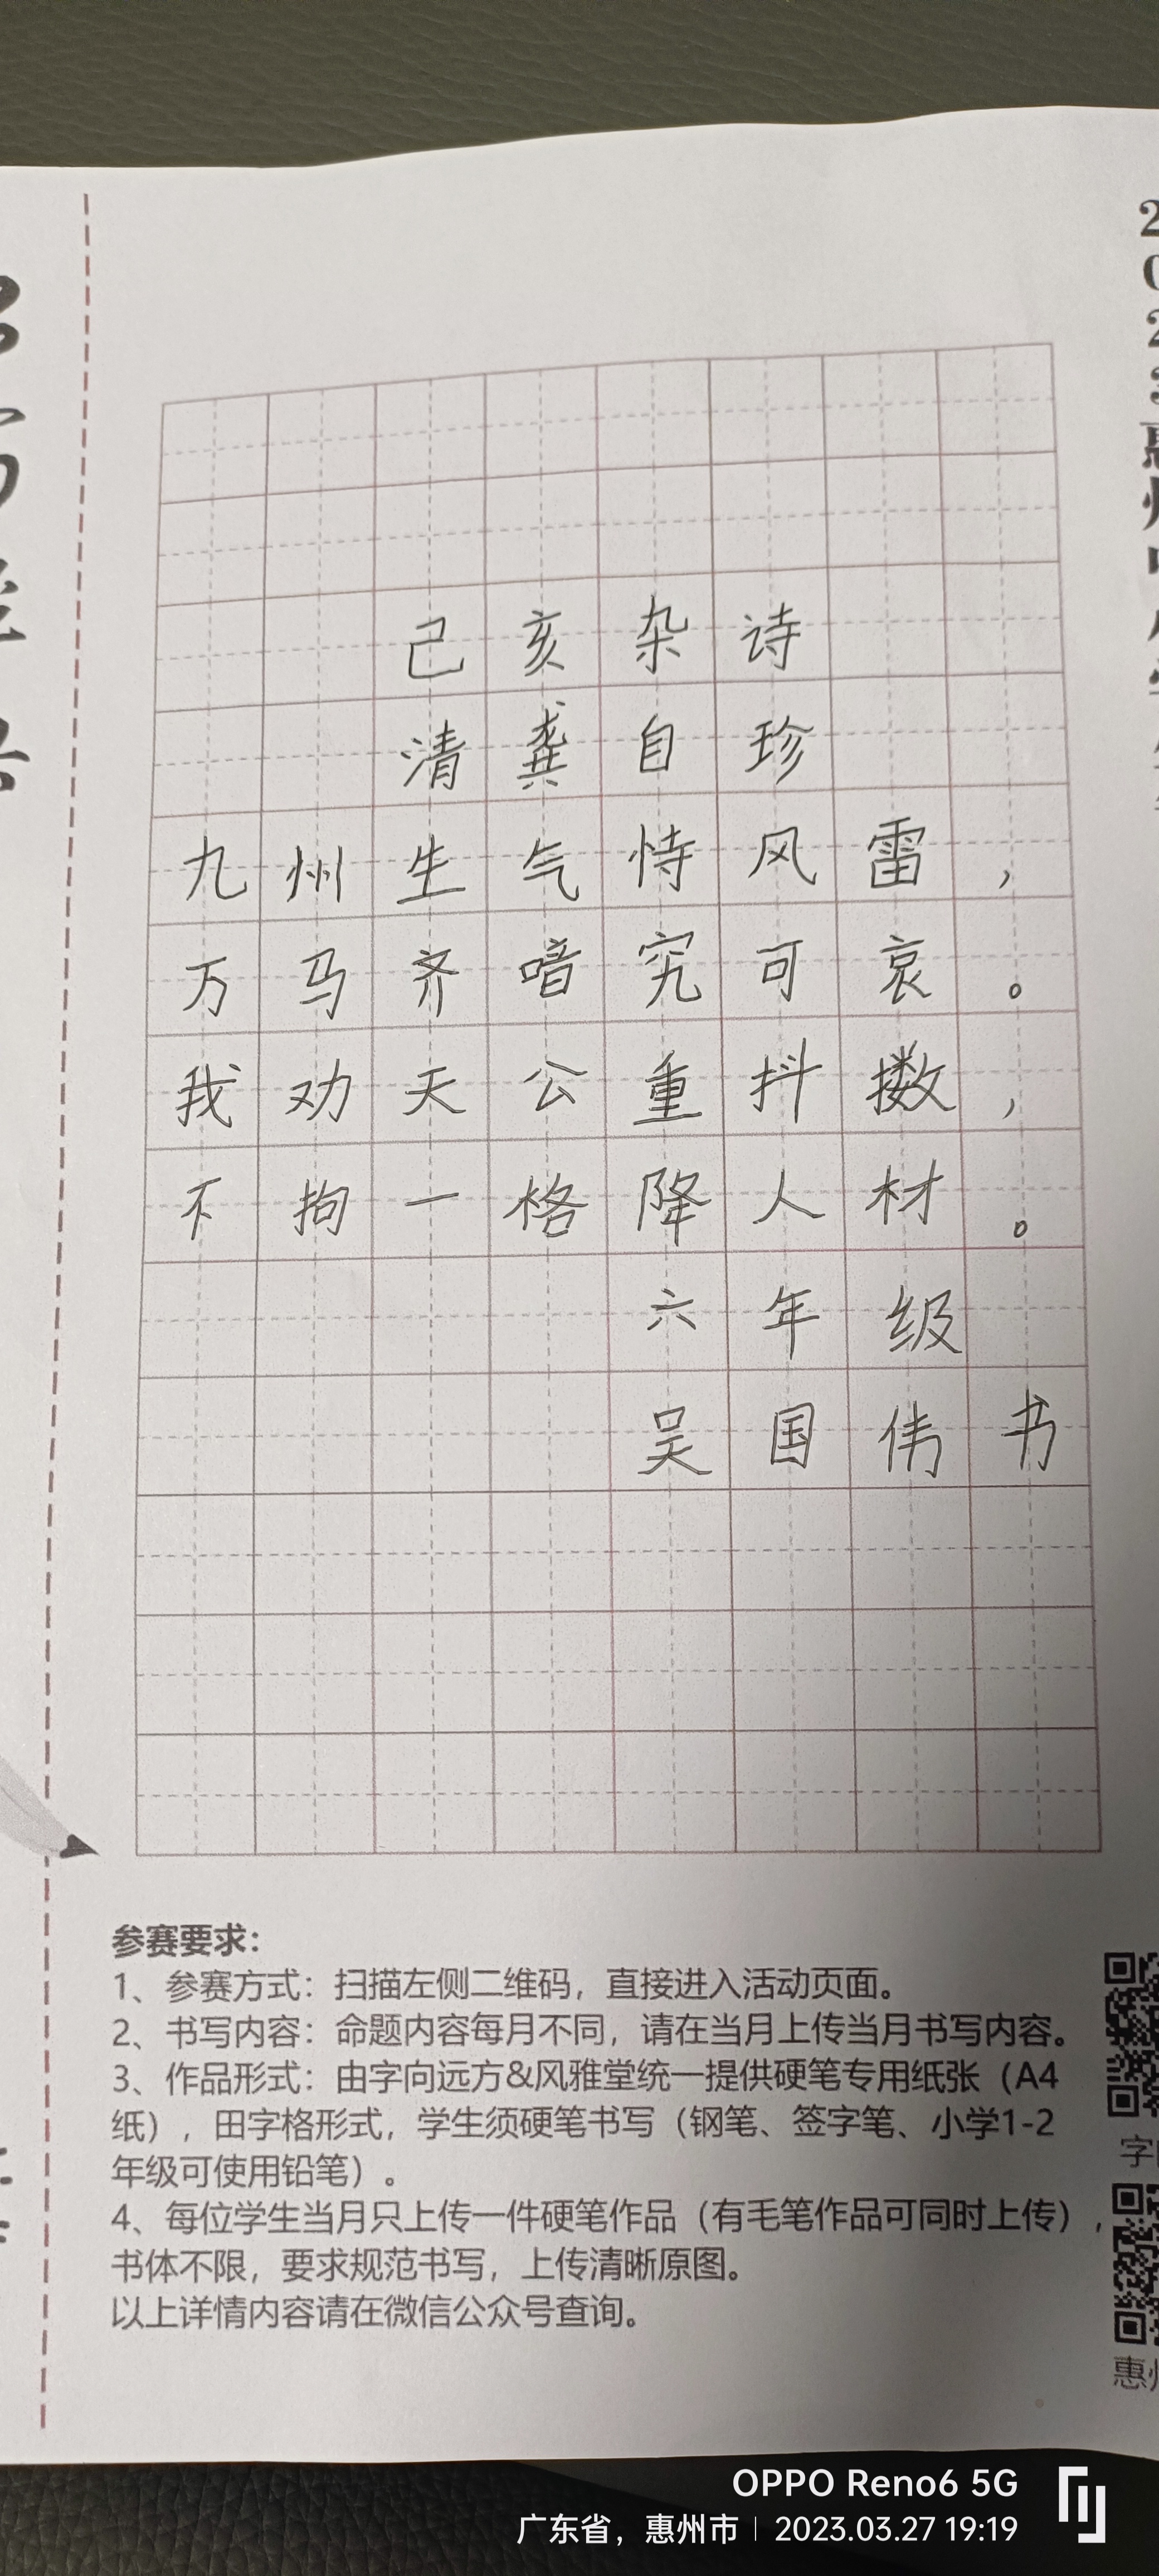 己亥杂诗
清龚自珍
九州生气恃风雷，
万马齐喑究可哀。
我劝天公重抖擞，
不拘一格降人材。
六年级
吴国伟书
参赛要求：
1、参赛方式：扫描左侧二维码，直接进入活动页面。
2、书写内容：命题内容每月不同，请在当月上传当月书写内容。
3、作品形式：由字向远方&风雅堂统一提供硬笔专用纸张（A4
纸），田字格形式，学生须硬笔书写（钢笔、签字笔、小学1-2
年级可使用铅笔）。
4、每位学生当月只上传一件硬笔作品（有毛笔作品可同时上传），
书体不限，要求规范书写，上传清晰原图。
以上详情内容请在微信公众号查询。
OPPO Reno6 5G
广东省，惠州市 | 2023.03.27 19:19